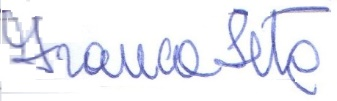 Franca Seta